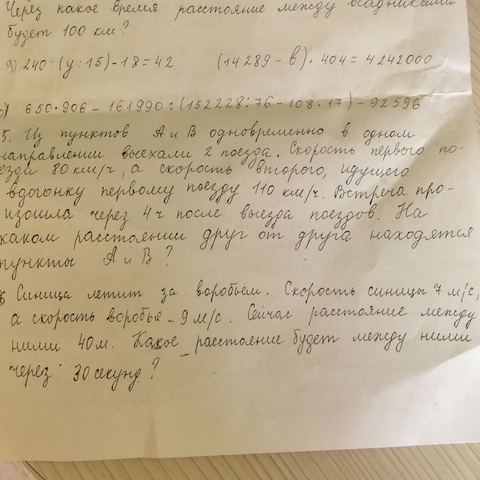 Через какое время расстояние между всадниками
будет 100 км?
240:(у:15)-18=42 (14289-в)·404=4242000
650·906-161990:(152228:76-108·17)-92596
5. Из пунктов А и В одновременно в одном
направлении выехали 2 поезда. Скорость первого по-
езда 80 км/ч, а скорость второго, идущего
вдогонку первому поезду 110 км/ч. Встреча про-
изошла через 4ч после выезда поездов. На
каком расстоянии друг от друга находятся
пункты А и В?
Синица летит за воробьём. Скорость синицы 7 м/с,
а скорость воробья - 9 м/с. Сейчас расстояние между
ними 40м. Какое расстояние будет между ними
через 30 секунд?